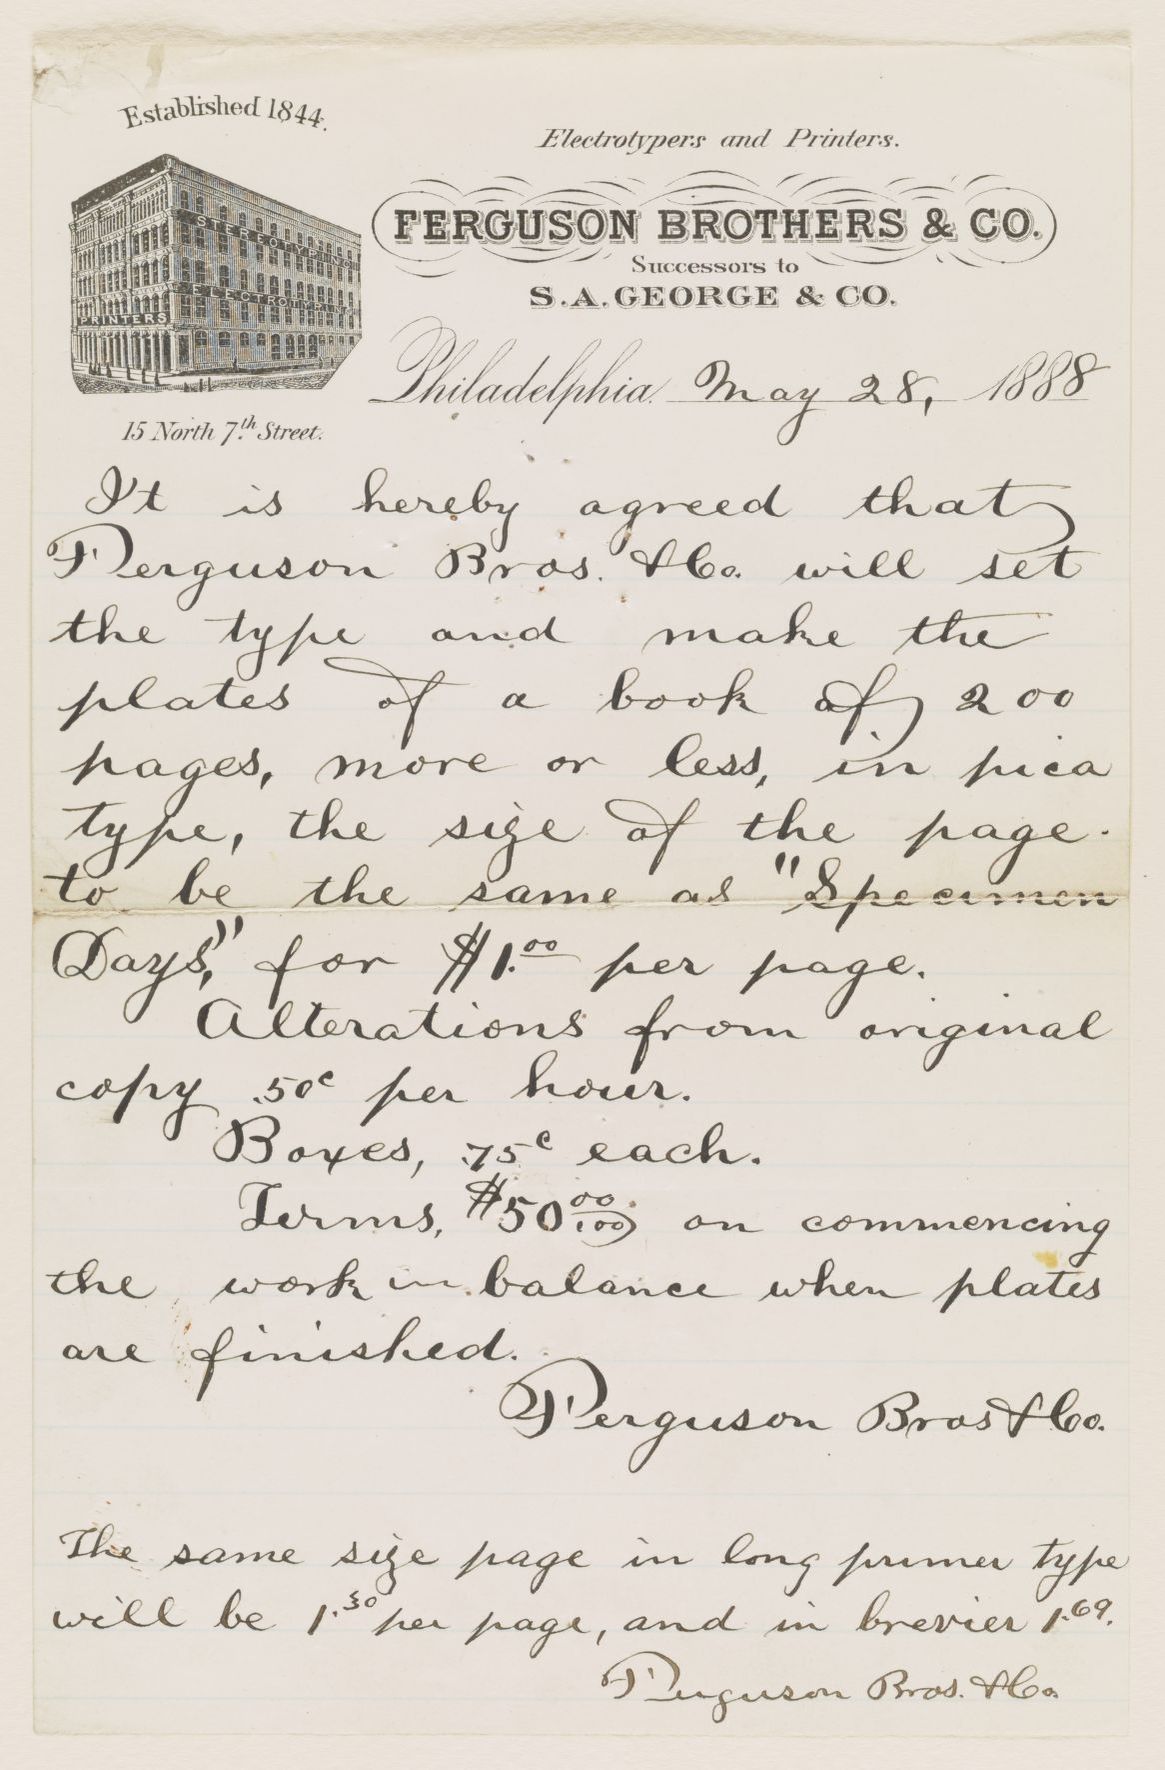 Established 1844.
Electrotypers and Printers.
FERGUSON BROTHERS & CO.
Successors to
S.A. GEORGE & CO.
STEREOTYPING
ELECTROTYPING
PRINTERS
Philadelphia. May 28, 1888
15 North 7th Street.
It is hereby agreed that
Ferguson Bros. & Co. will set
the type and make the
plates of a book of 200
pages, more or less, in pica
type, the size of the page
to be the same as "Specimen
Days," for $1.00 per page.
Alterations from original
copy .50c per hour.
Boxes, .75c each.
Terms, $50.00/100 on commencing
the work balance when plates
are finished.
Ferguson Bros & Co.
The same size page in long primer type
will be 1.30 per page, and in brevier 1.69.
Ferguson Bros. & Co.